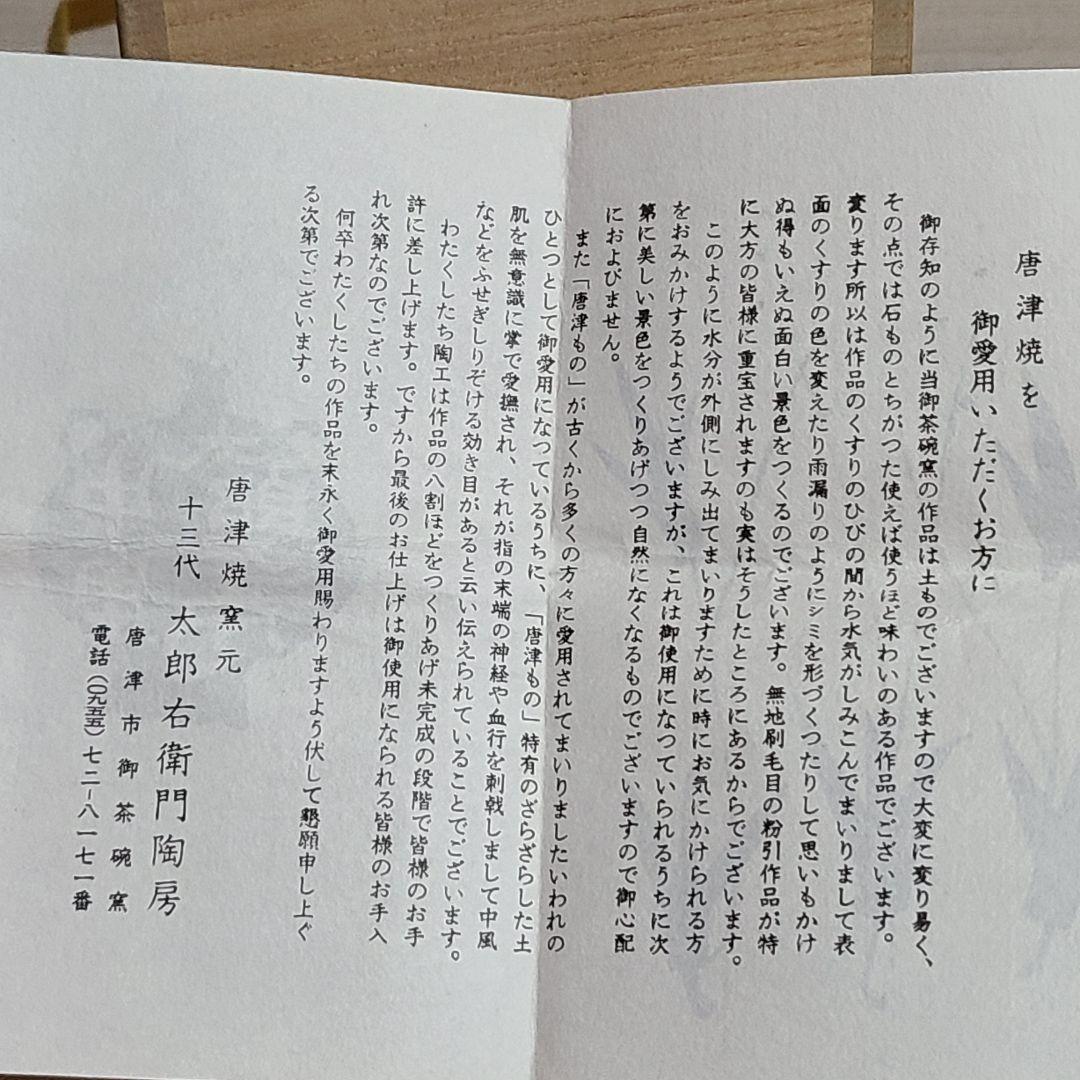 唐津焼を
御愛用いただくお方に
御存知のように当御茶碗窯の作品は土ものでございますので大変に変り易く、
その点では石ものとちがつた使えば使うほど味わいのある作品でございます。
変ります所以は作品のくすりのひびの間から水気がしみこんでまいりまして表
面のくすりの色を変えたり雨漏りのようにシミを形づくつたりして思いもかけ
ぬ得もいえぬ面白い景色をつくるのでございます。無地刷毛目の粉引作品が特
に大方の皆様に重宝されますのも実はそうしたところにあるからでございます。
このように水分が外側にしみ出てまいりますために時にお気にかけられる方
をおみかけするようでございますが、これは御使用になつていられるうちに次
第に美しい景色をつくりあげつつ自然になくなるものでございますので御心配
におよびません。
また「唐津もの」が古くから多くの方々に愛用されてまいりましたいわれの
ひとつとして御愛用になつているうちに、「唐津もの」特有のざらざらした土
肌を無意識に掌で愛撫され、それが指の末端の神経や血行を刺戟しまして中風
などをふせぎしりぞける効き目があると云い伝えられていることでございます。
わたくしたち陶工は作品の八割ほどをつくりあげ未完成の段階で皆様のお手
許に差し上げます。ですから最後のお仕上げは御使用になられる皆様のお手入
れ次第なのでございます。
何卒わたくしたちの作品を末永く御愛用賜わりますよう伏して懇願申し上ぐ
る次第でございます。
唐津焼窯元
十三代 太郎右衛門陶房
唐津市御茶碗窯
電話(〇九五五)七二-八一七一番